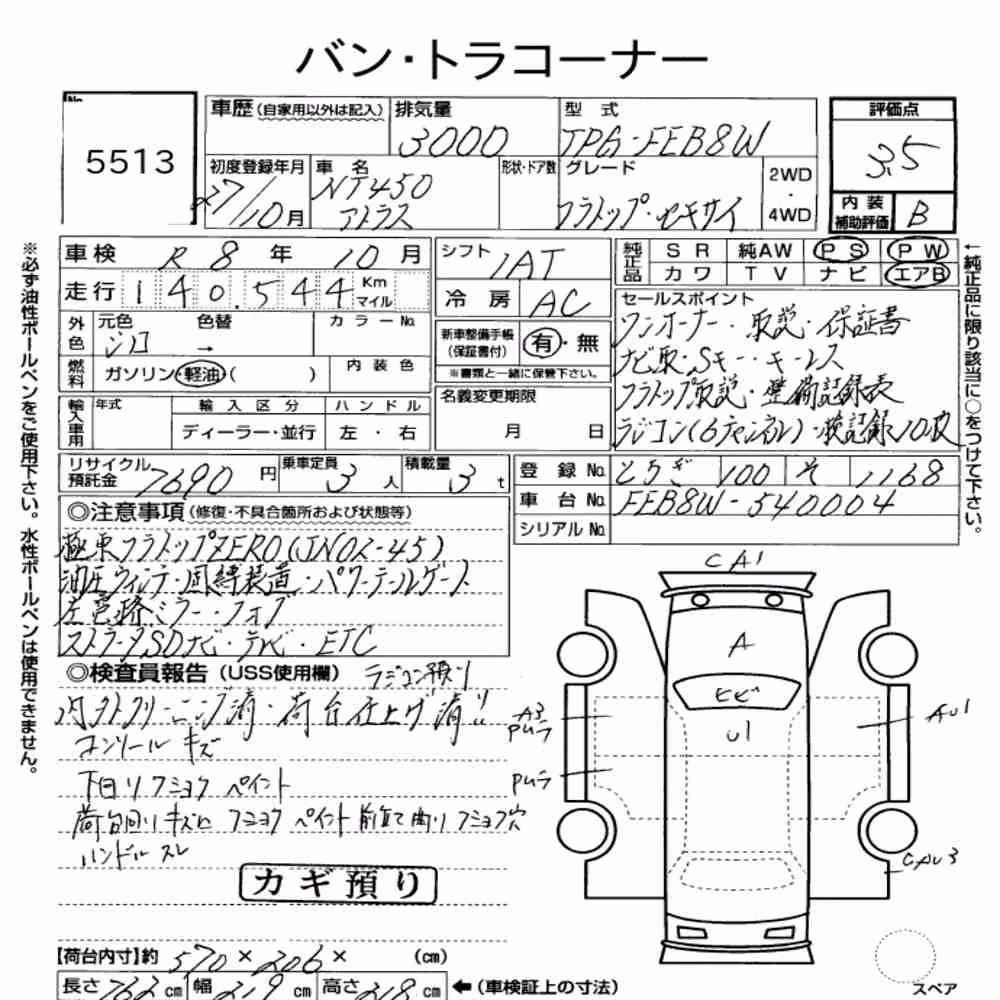 バン・トラコーナー
5513
車歴(自家用以外は記入) 排気量 3000 型式 TPG-FEB8W
評価点 3.5
初度登録年月 27/10月 車名 NT450 アトラス 形状・ドア数 グレード フラトップ・セキサイ 2WD・4WD
内装補助評価 B
車検 R8年10月 シフト IAT
純正品 SR 純AW PS PW
カワ TV ナビ エアB
走行 140,544 Km マイル
冷房 AC
セールスポイント
ワンオーナー・取説・保証書
ナビ取・Sキー・キーレス
フラトップ取説・整備記録表
ラジコン(6チャンネル)・検記録10枚
外色 元色 シロ 色替 → カラーNo.
新車整備手帳(保証書付) 有・無
※書類と一緒に保管下さい。
燃料 ガソリン・軽油( ) 内装色
名義変更期限 月 日
輸入車用 年式 輸入区分 ディーラー・並行 ハンドル 左・右
リサイクル預託金 7690円 乗車定員 3人 積載量 3t
登録No. とちぎ 100 そ 1168
車台No. FEB8W-540004
シリアルNo.
◎注意事項(修復・不具合箇所および状態等)
極東フラトップZERO(JN02-45)
油圧ウィンチ・固縛装置・パワーテールゲート
左電格ミラー・フォグ
ストラーダSDナビ・テレビ・ETC
◎検査員報告(USS使用欄) ラジコン預り
内外クリーニング済・荷台仕上げ済!!
コンソールキズ
下回りフショクペイント
荷台回りキズ フショクペイント 前立て回りフショク穴
ハンドルスレ
カギ預り
【荷台内寸】約 570×206× (cm)
長さ762cm 幅219cm 高さ218cm ←(車検証上の寸法)
CA1
A
ヒビ
U1
A3
Pムラ
Pムラ
AU1
CAU3
スペア
※必ず油性ボールペンをご使用下さい。水性ボールペンは使用できません。
←純正品に限り該当に○をつけて下さい。